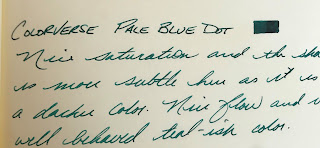 COLORVERSE PALE BLUE DOT
Nice saturation and the sha
is more subtle here as it is
a darker color. Nice flow and
well behaved teal-ish color.